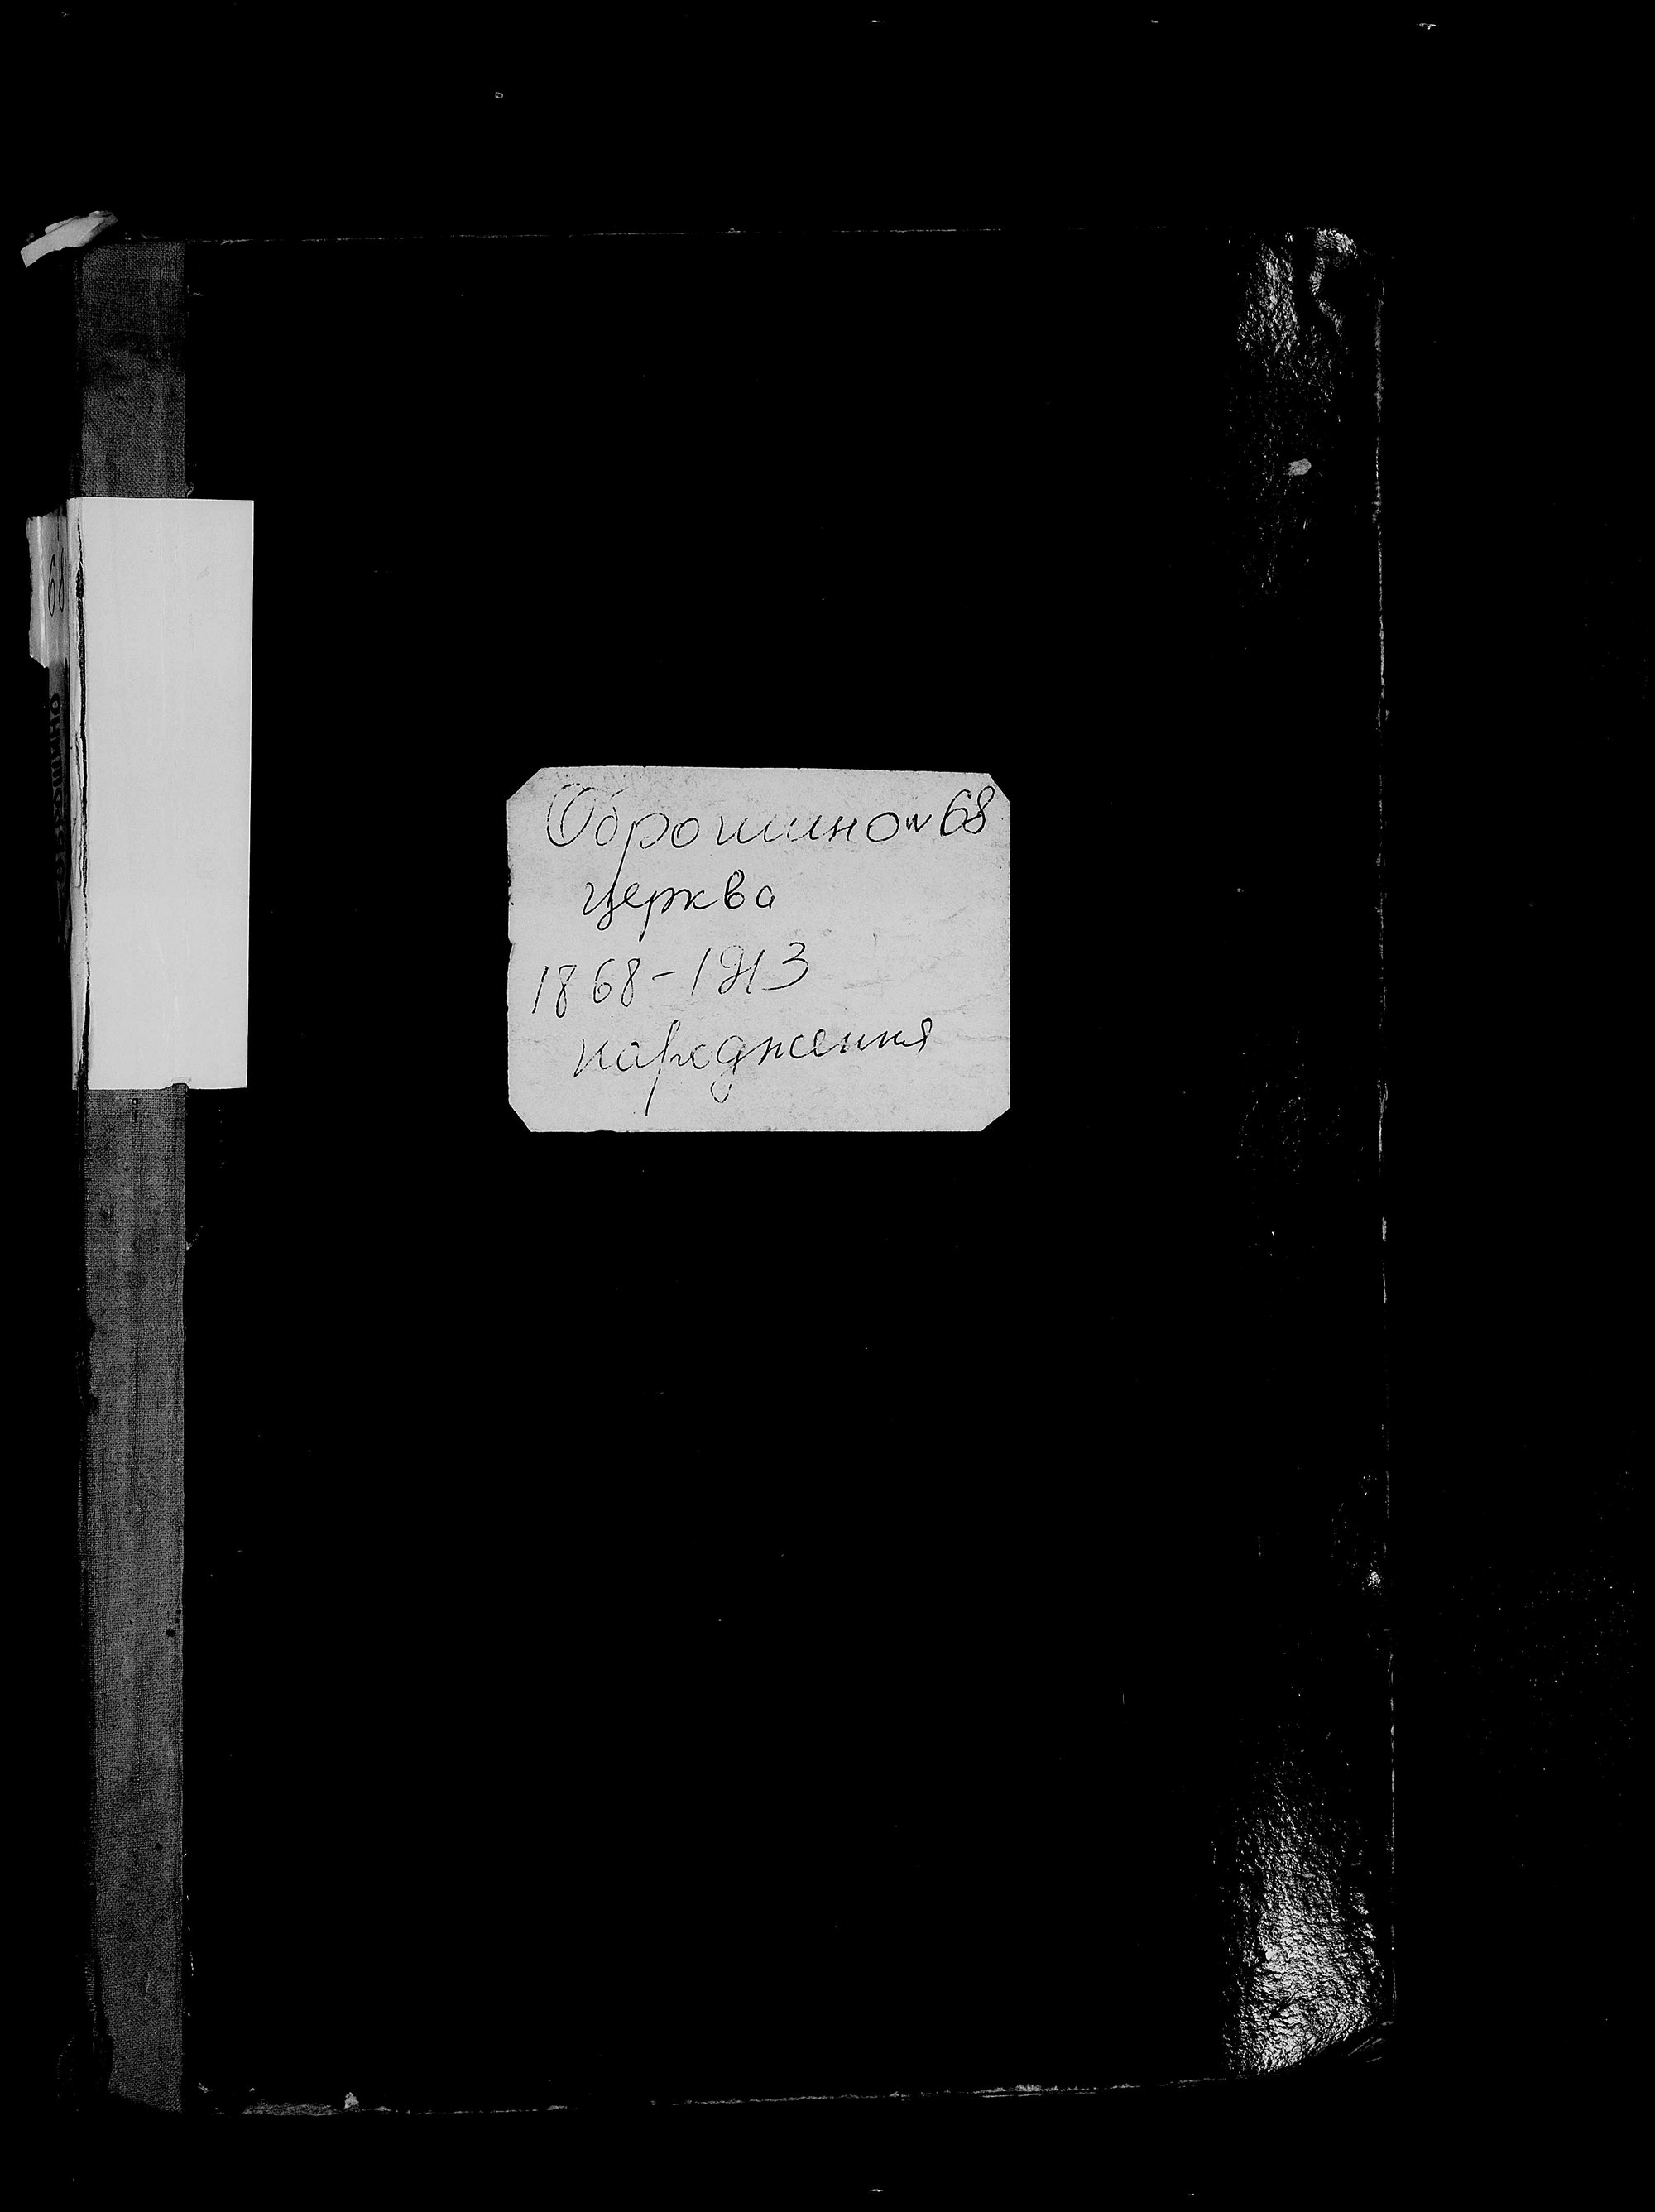 Оброшино № 68
церква
1868-1913
народження
68